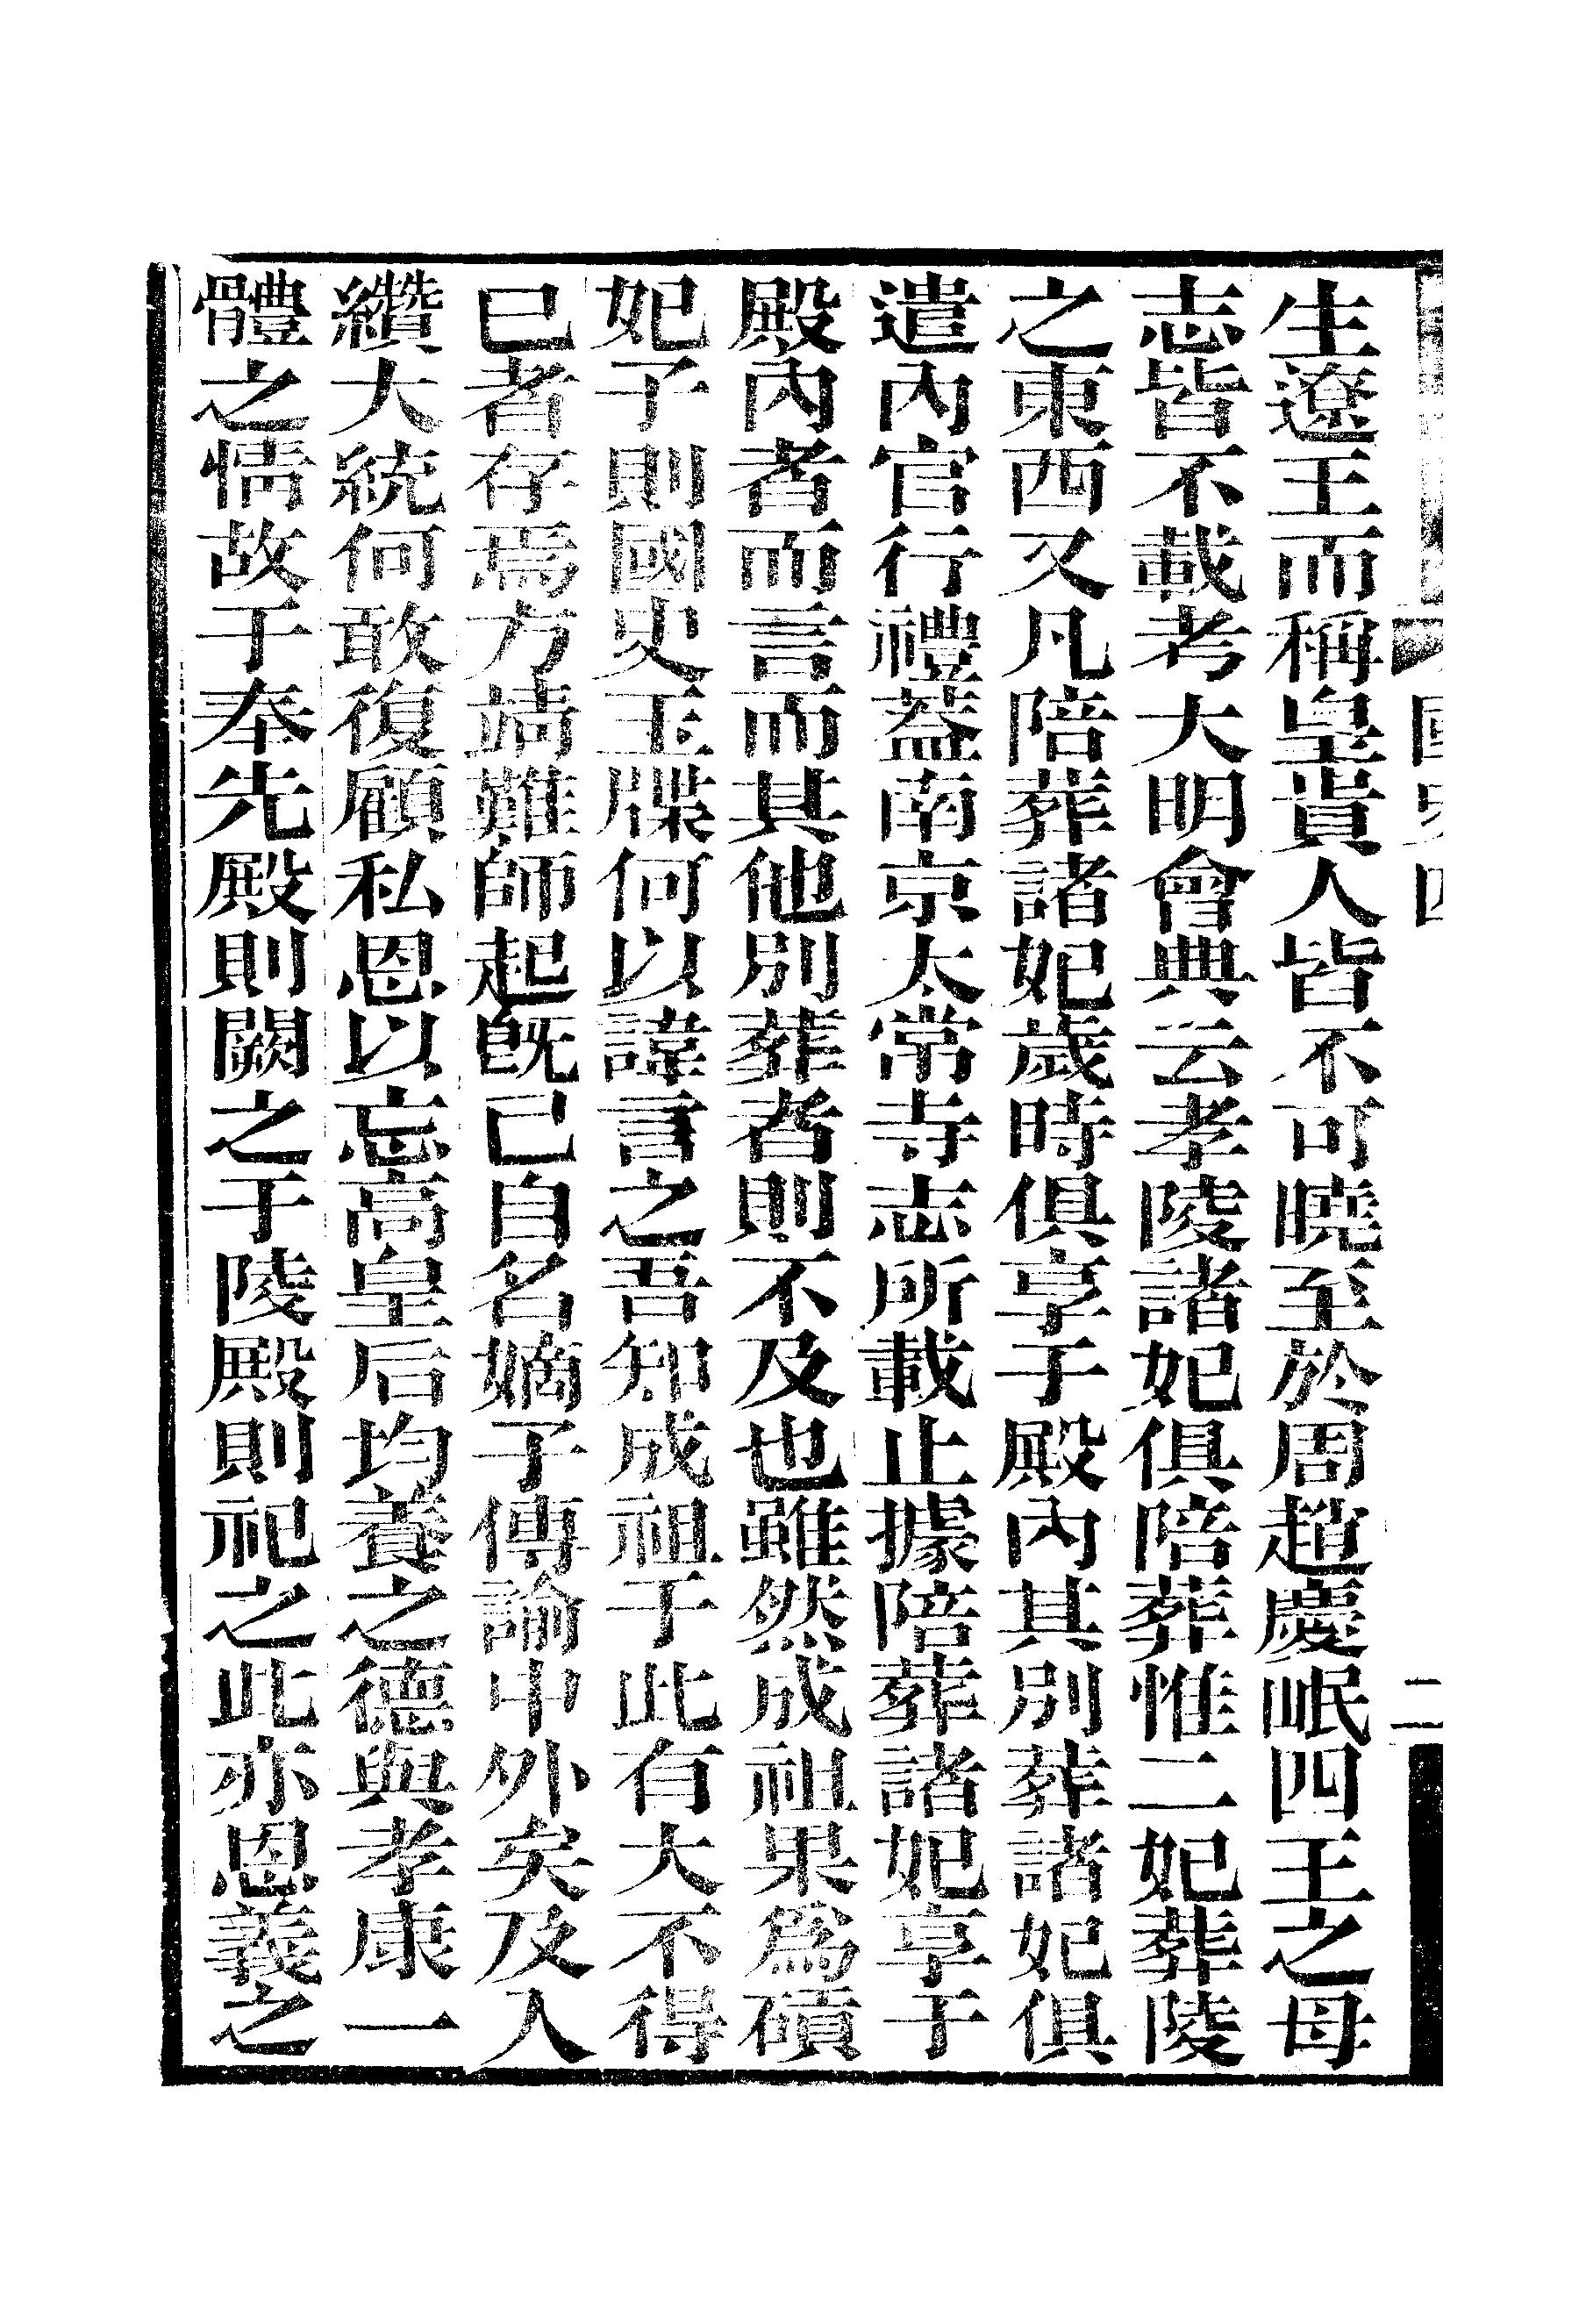 生遼王而稱皇貴人皆不可曉至於周趙慶岷四王之母
志皆不載考大明會典云孝陵諸妃俱陪葬惟二妃葬陵
之東西又凡陪葬諸妃歲時俱享于殿內其別葬諸妃俱
遣內官行禮葢南京太常寺志所載止據陪葬諸妃享于
殿內者而言而其他別葬者則不及也雖然成祖果爲碽
妃子則國史玉牒何以諱言之吾知成祖于此有大不得
已者存焉方靖難師起旣已自名嫡子傳諭中外矣及入
纘大統何敢復顧私恩以忘高皇后均養之德與孝康一
體之情故于奉先殿則闕之于陵殿則祀之此亦恩義之